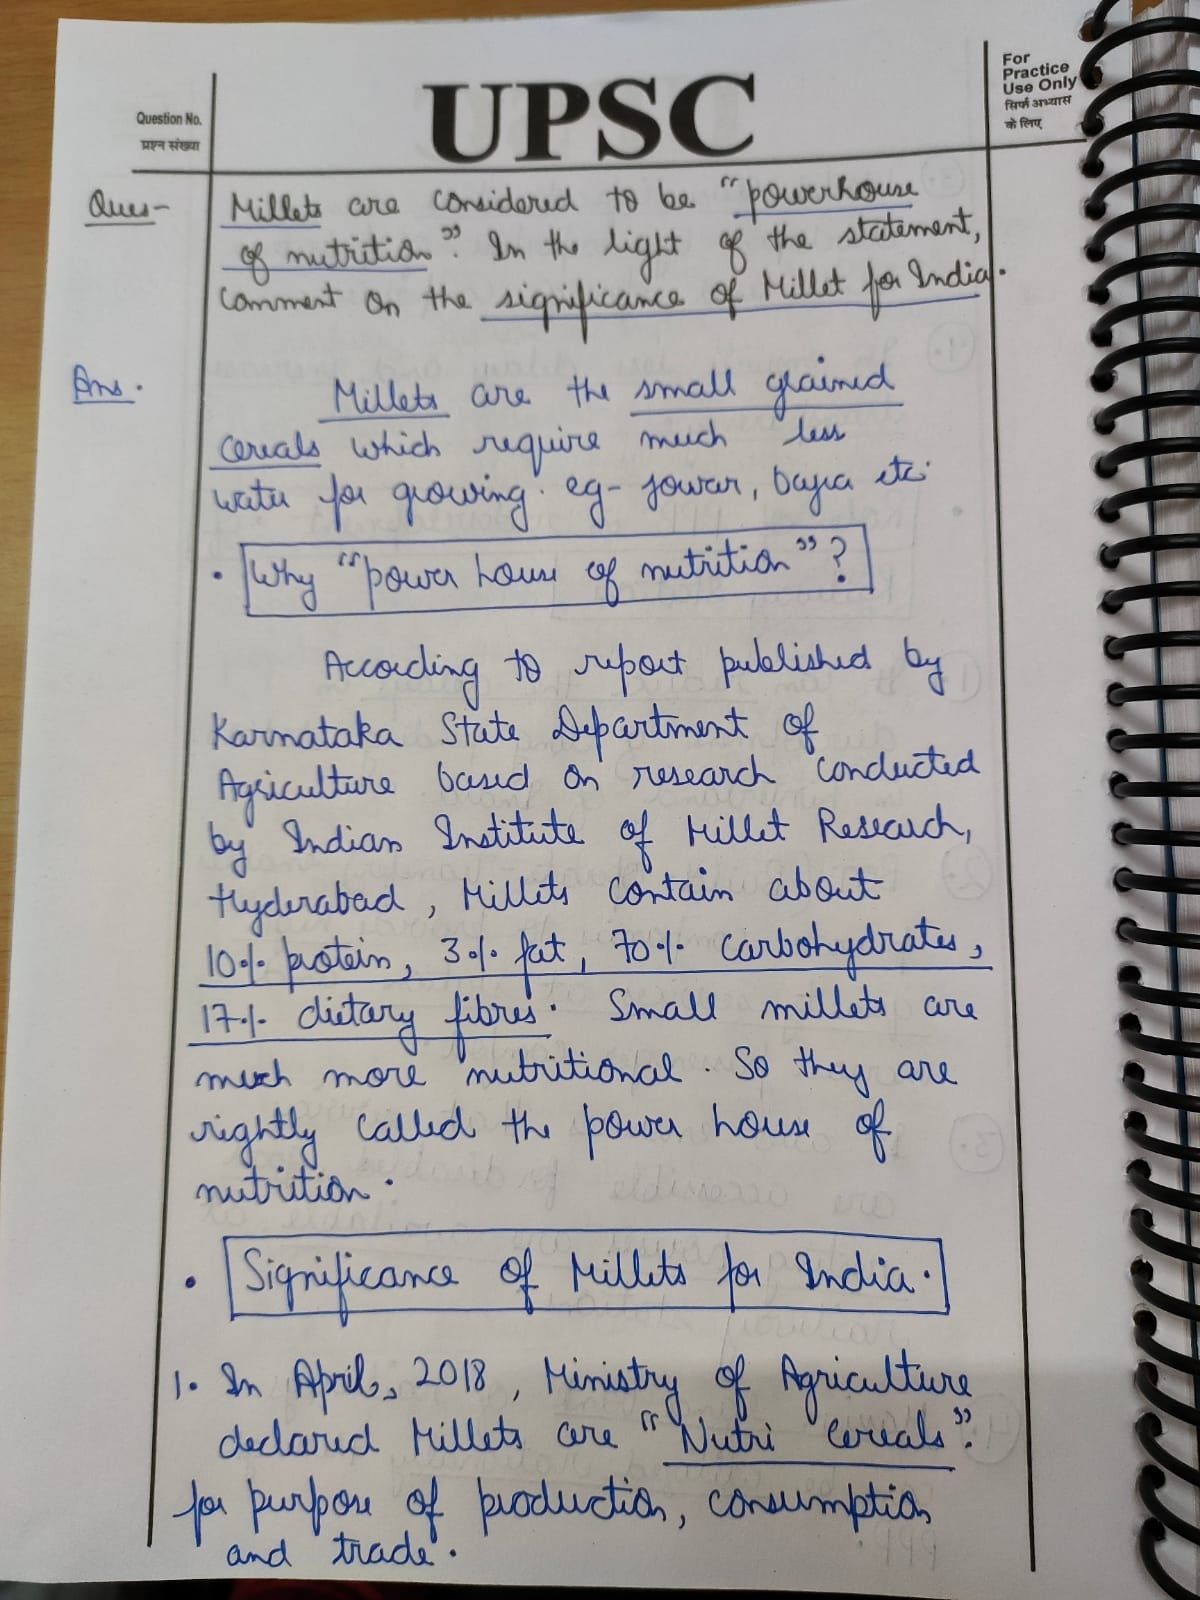 UPSC
For
Practice
Use Only
सिर्फ अभ्यास
के लिए
Question No.
प्रश्न संख्या
Ques- Millets are considered to be "powerhouse
of nutrition". In the light of the statement,
comment on the significance of Millet for India.
Ans. Millets are the small grained
cereals which require much less
water for growing. eg- Jowar, bajra etc.
• Why "power house of nutrition"?
According to report published by
Karnataka State Department of
Agriculture based on research conducted
by Indian Institute of Millet Research,
Hyderabad, Millets contain about
10% protein, 3% fat, 70% carbohydrates,
17% dietary fibres. Small millets are
much more nutritional. So they are
rightly called the power house of
nutrition.
• Significance of Millets for India.
1. In April, 2018, Ministry of Agriculture
declared Millets are "Nutri Cereals".
for purpose of production, consumption
and trade.